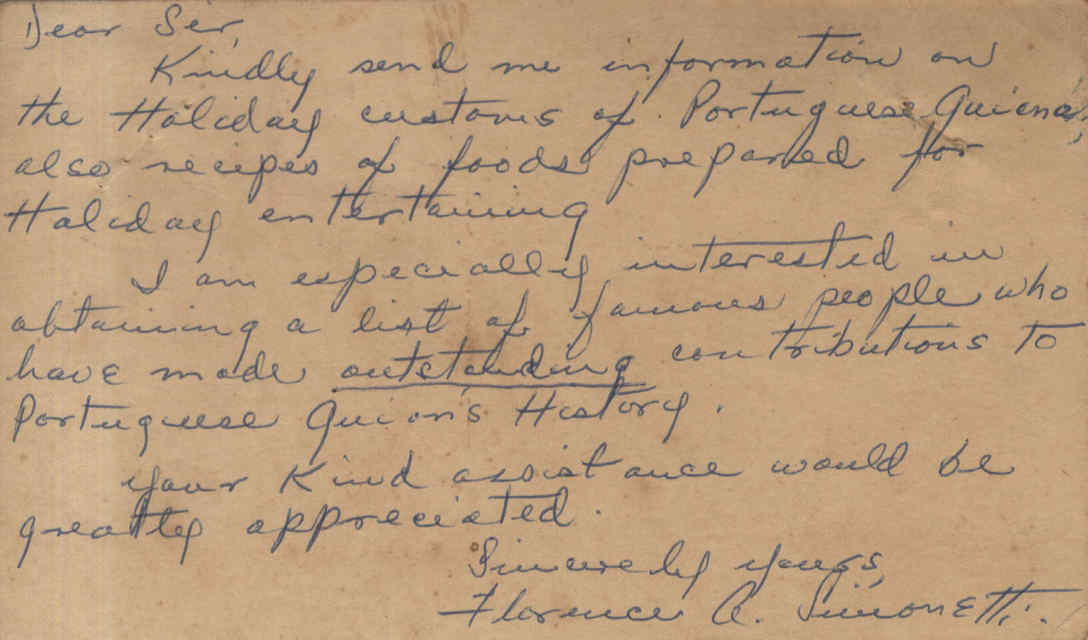 Dear Sir,
Kindly send me information on
the Holiday customs of Portuguese Guiena,
also recipes of foods prepared for
Holiday entertaining
I am especially interested in
obtaining a list of famous people who
have made outstanding contributions to
Portuguese Guion's History.
Your Kind assistance would be
greatly appreciated.
Sincerely yours,
Florence A. Simonetti.